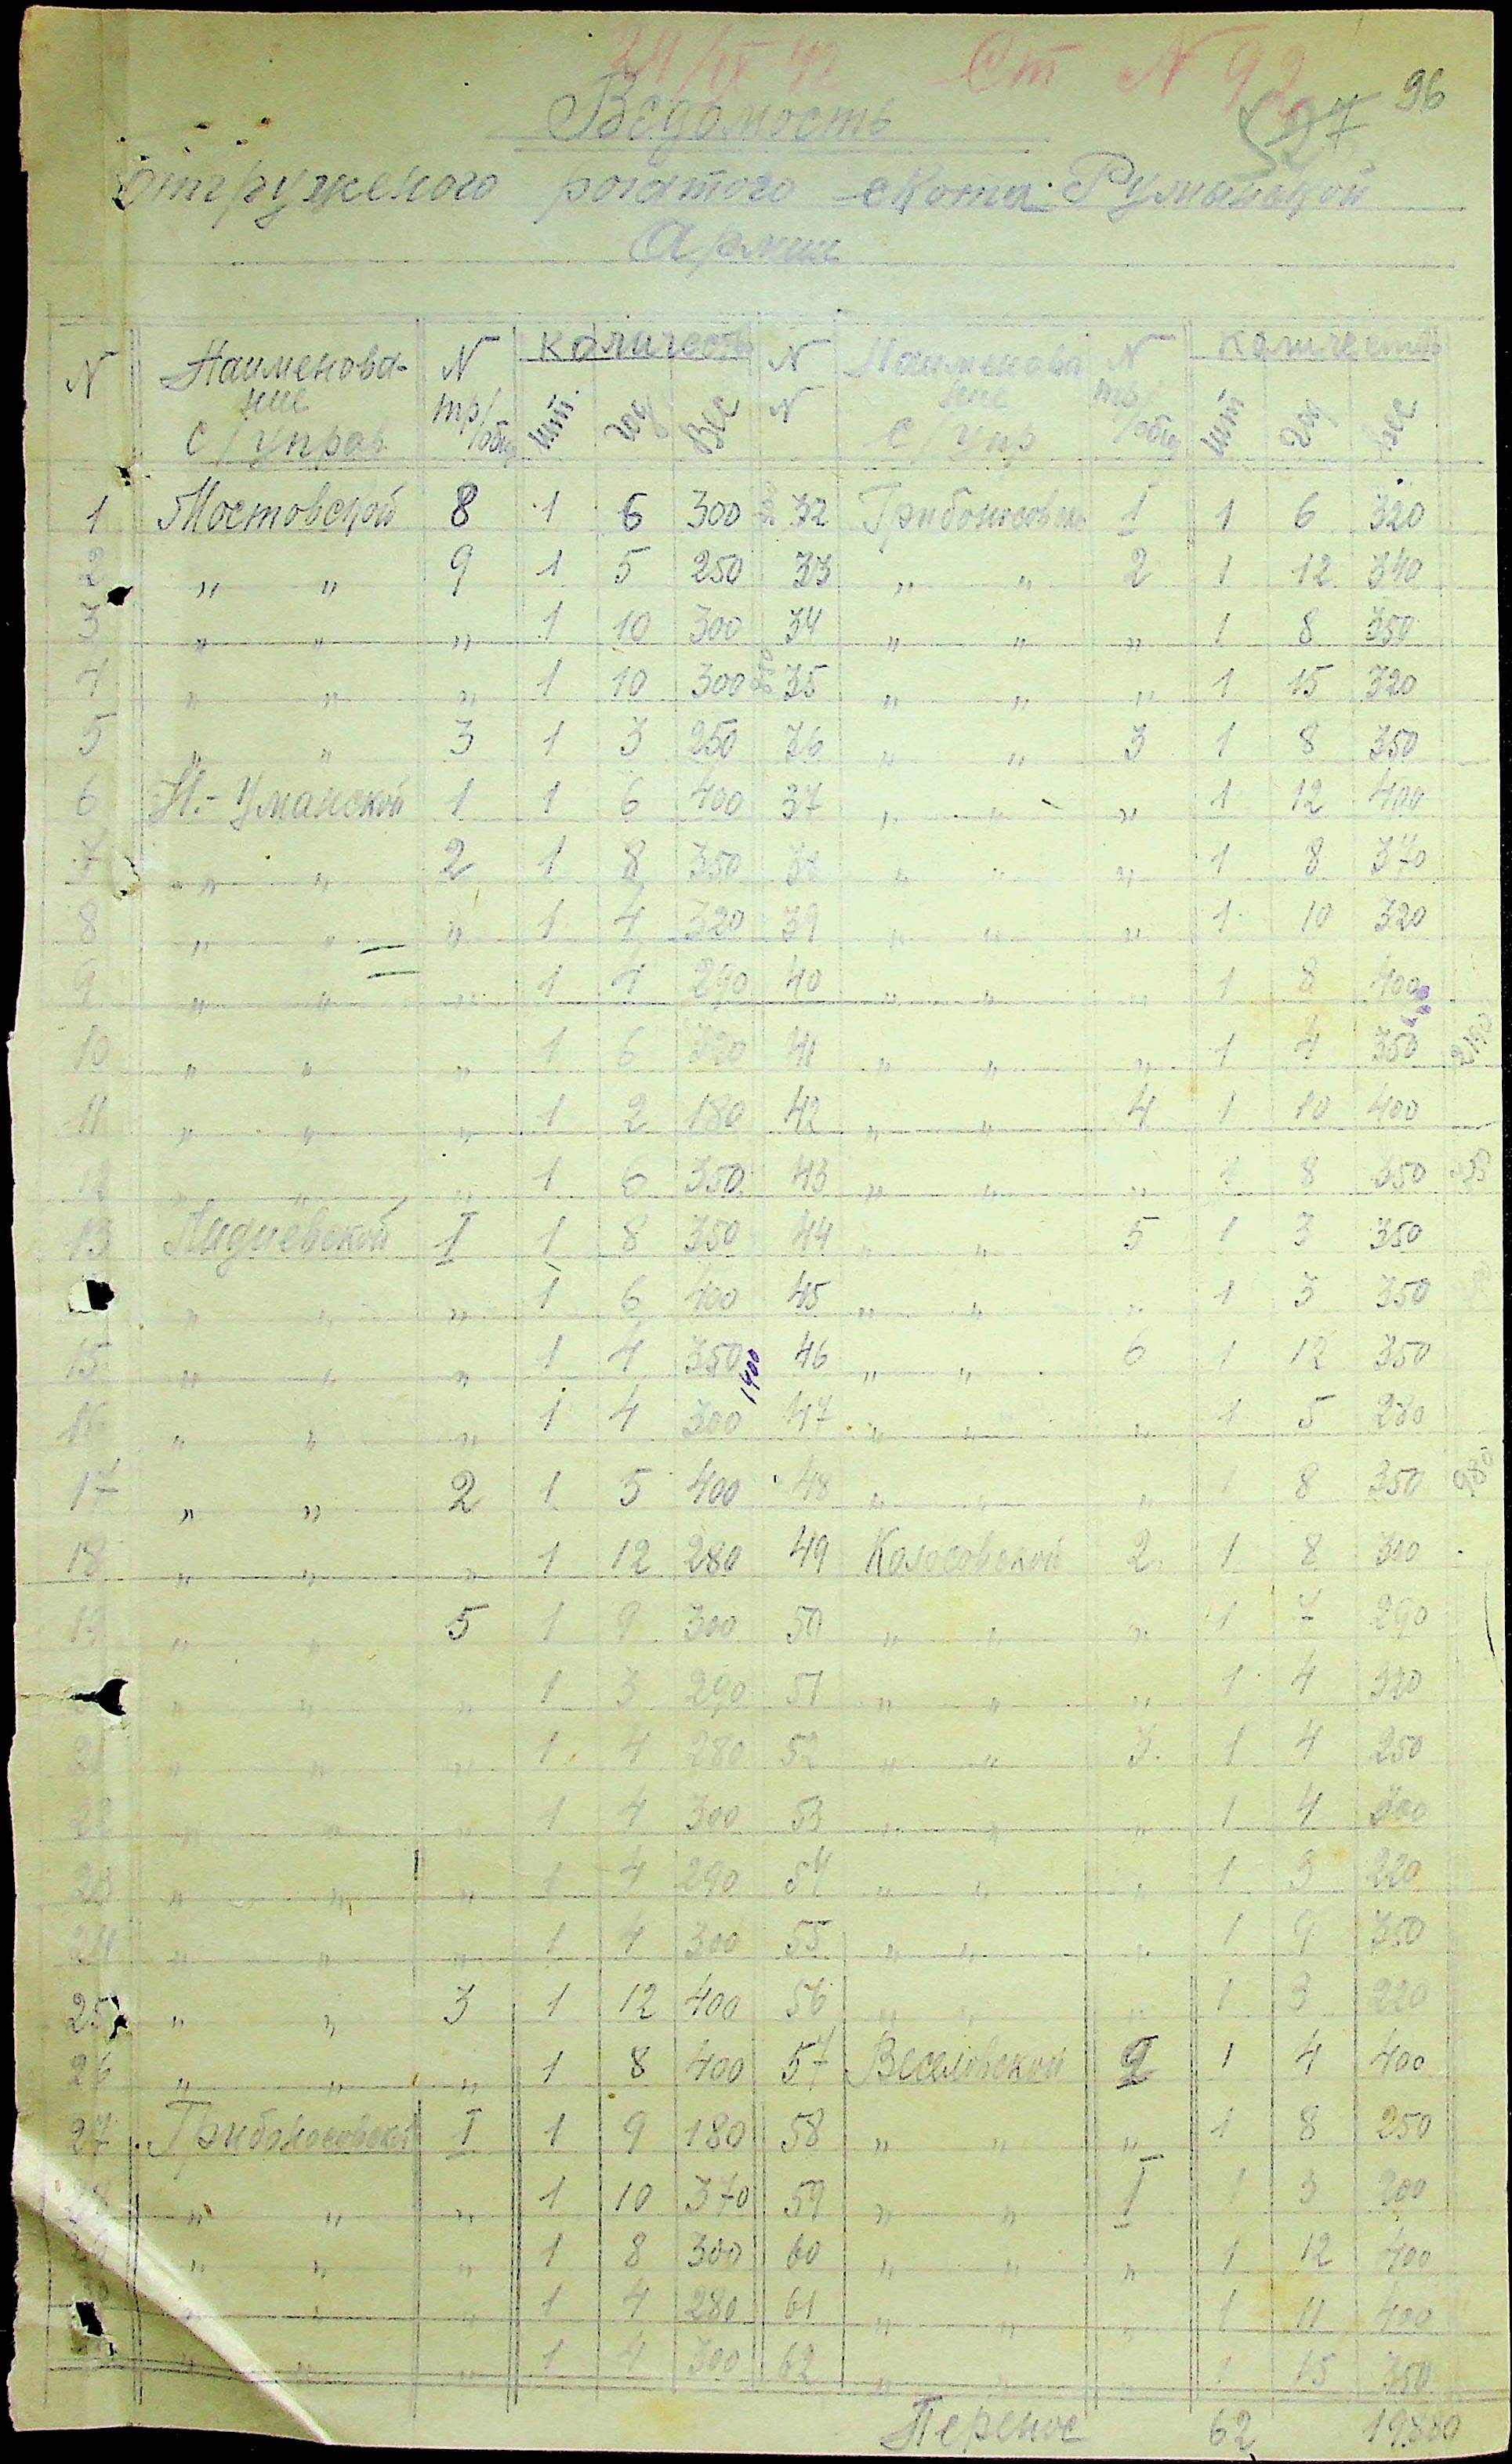 24/IX 42 Ст N 92
96
97
Ведомость
отгруженого рогатого скота Румынской
Армии
N | Наименова-ние с/управ | N тр/общ | Количеств | N N | Наименова ние с/упр | N тр/общ | Количество
шт | год | вес | шт | год | вес
1 Мостовской 8 1 6 300 32 1 1 6 320
2 „ „ 9 1 5 250 33 „ „ 2 1 12 340
3 „ „ „ 1 10 300 34 „ „ „ 1 8 350
4 „ „ „ 1 10 300 35 „ „ „ 1 15 320
5 „ „ 3 1 3 250 36 „ „ 3 1 8 350
6 Н.-Уманской 1 1 6 400 37 „ „ „ 1 12 400
7 „ „ 2 1 8 350 38 „ „ „ 1 8 370
8 „ „ „ 1 4 320 39 „ „ „ 1 10 320
9 „ „ „ 1 4 290 40 „ „ „ 1 8 400
10 „ „ „ 1 6 320 41 „ „ „ 1 4 350
11 „ „ „ 1 2 180 42 „ „ 4 1 10 400
12 „ „ „ 1 6 350 43 „ „ „ 1 8 350
13 Лидиевской I 1 8 350 44 „ „ 5 1 3 350
„ „ „ 1 6 400 45 „ „ „ 1 3 350
15 „ „ „ 1 4 350 1400 46 „ „ 6 1 12 350
16 „ „ „ 1 4 300 47 „ „ „ 1 5 280
17 „ „ 2 1 5 400 48 „ „ „ 1 8 350 980
18 „ „ „ 1 12 280 49 Колосовской 2 1 8 300
19 „ „ 5 1 9 300 50 „ „ „ 1 7 290
„ „ „ 1 3 290 51 „ „ „ 1 4 320
21 „ „ „ 1 4 280 52 „ „ 3 1 4 250
22 „ „ „ 1 4 300 53 „ „ „ 1 4 300
23 „ „ „ 1 4 290 54 „ „ „ 1 3 220
24 „ „ „ 1 4 300 55 „ „ „ 1 9 350
25 „ „ 3 1 12 400 56 „ „ „ 1 3 220
26 „ „ „ 1 8 400 57 Веселовской 2 1 4 400
27 I 1 9 180 58 „ „ „ 1 8 250
28 „ „ „ 1 10 370 59 „ „ I 1 3 200
29 „ „ „ 1 8 300 60 „ „ „ 1 12 400
„ „ „ 1 4 280 61 „ „ „ 1 11 400
„ „ „ 1 4 300 62 „ „ „ 1 15 350
Перенос 62 19880